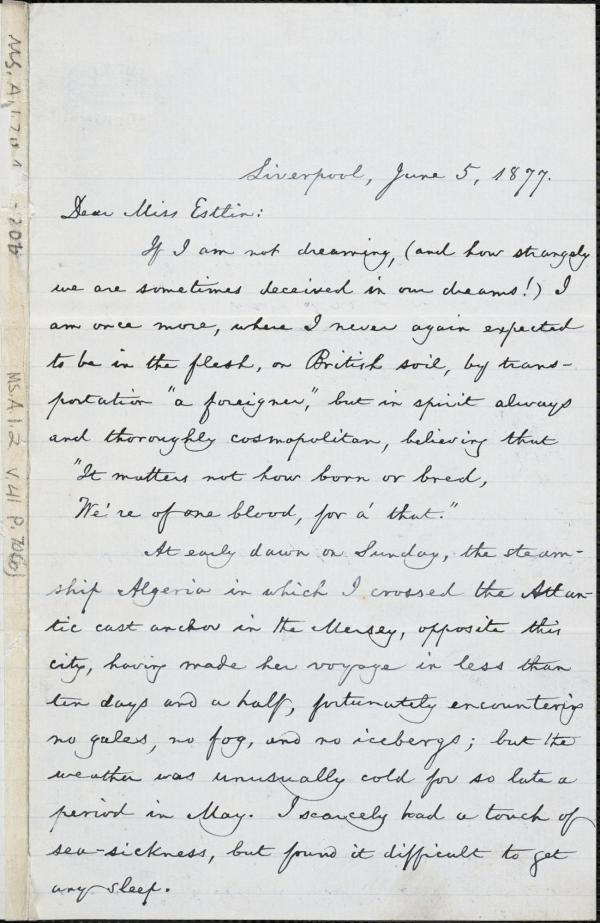 Liverpool, June 5, 1877.
Dear Miss Estlin:
If I am not dreaming, (and how strangely
we are sometimes deceived in our dreams!) I
am once more, where I never again expected
to be in the flesh, on British soil, by trans-
portation "a foreigner," but in spirit always
and thoroughly cosmopolitan, believing that
"It matters not how born or bred,
We're of one blood, for a' that."
At early dawn on Sunday, the steam-
ship Algeria in which I crossed the Atlan-
tic cast anchor in the Mersey, opposite this
city, having made her voyage in less than
ten days and a half, fortunately encountering
no gales, no fog, and no icebergs; but the
weather was unusually cold for so late a
period in May. I scarcely had a touch of
sea-sickness, but found it difficult to get
any sleep.
MS.A.1.2 V.41 P.